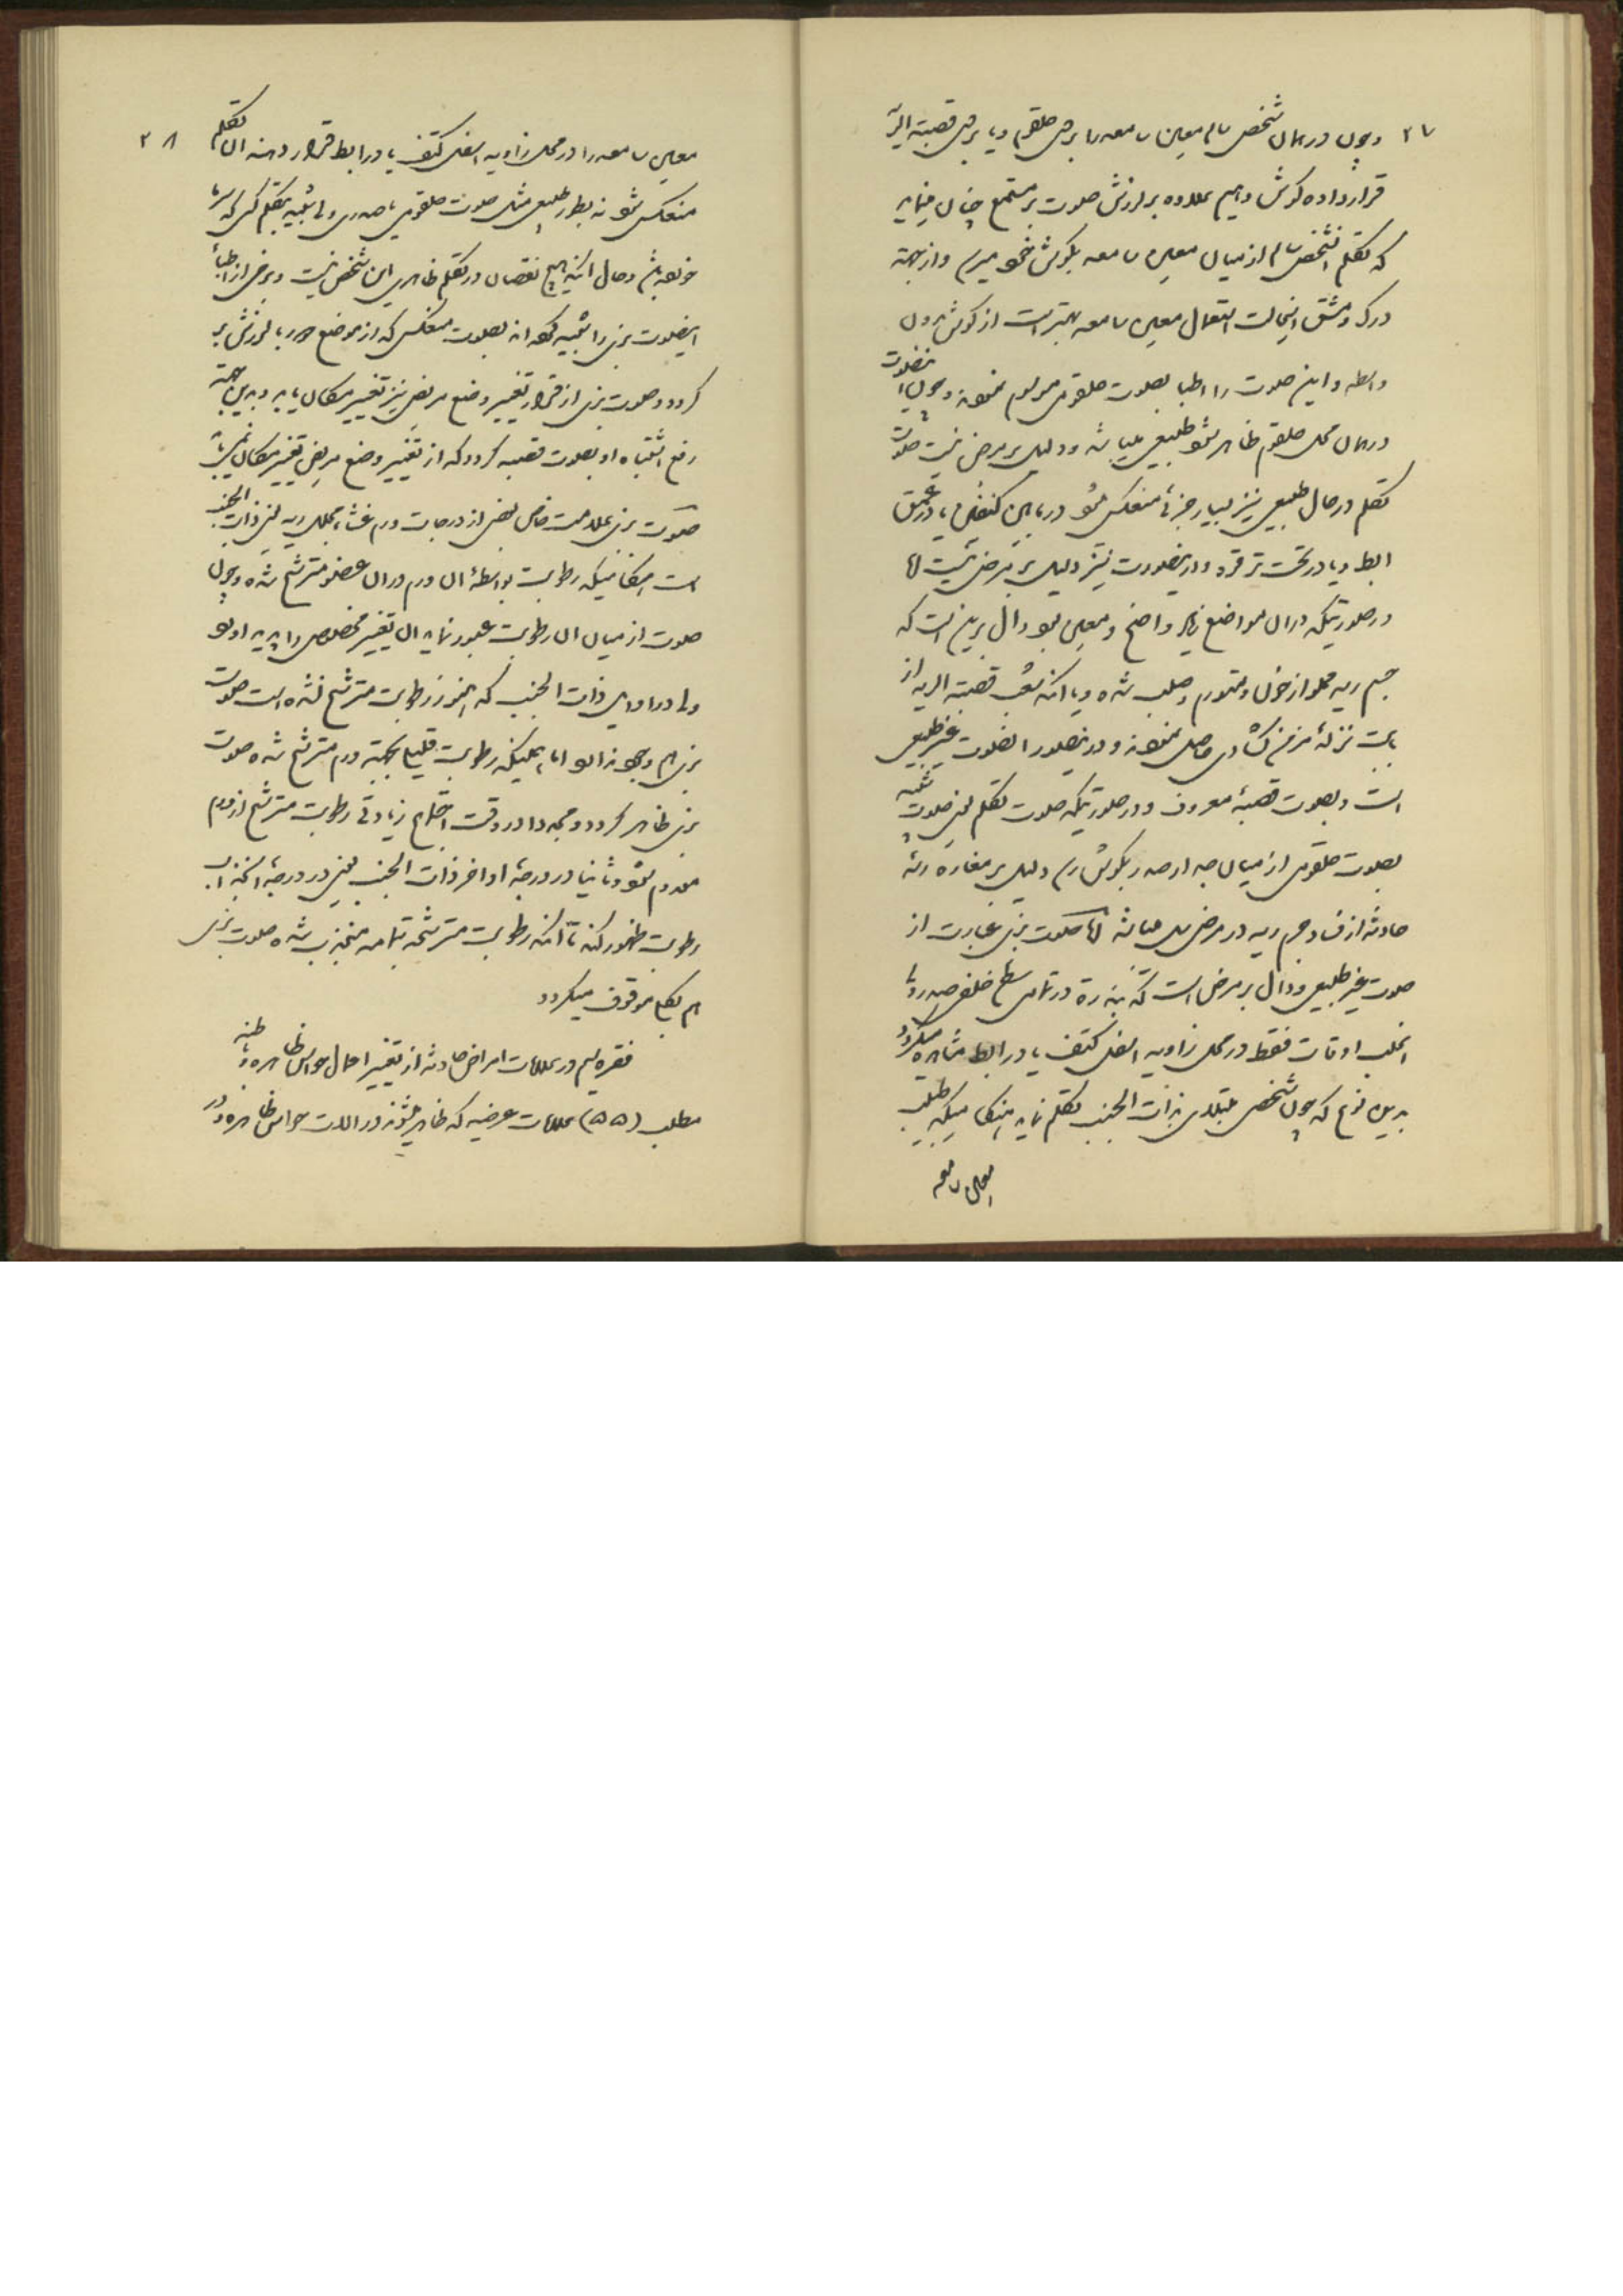 ۲۷ و چون در همان شخص سالم معین سامعه را بر روی حلقوم و یا بر روی قصبة الریه
قرار داده گوش دهیم علاوه بر لرزش صوت بر مستمع چنان مینماید
که تکلم انشخص سالم از میان معین سامعه بگوش خود میرسد و از جهة
درک و مشق اینحالت استعمال معین سامعه بهتر است از گوش بدون
واسطه و این صوت را اطبا بصوت حلقومی موسوم نموده و چون اینصوت
در همان محل حلقوم ظاهر شود طبیعی میباشد و دلیل بر مرض نیست صوت
تکلم در حال طبیعی نیز بسیار جزئی منعکس شود در مابین کتفین یا در عمق
ابط و یا در تحت ترقوه و در اینصورت نیز دلیل بر مرض نیست اما
در صورتیکه در ان مواضع زیاد واضح و معین بود دال بر این است که
جسم ریه مملو از خون و متورم و صلب شده و یا انکه شعب قصبة الریه از
بابت نزلهٔ مزمن گشادی حاصل نموده و در اینصورت انصوت غیر طبیعی
است و بصوت قصبهٔ معروف و در صورتیکه صوت تکلم یعنی صوت شبیه
بصوت حلقومی از میان جدار صدر بگوش رسد دلیل بر مغاره ریه
حادثه از فساد جرم ریه در مرض سل میباشد اما صوت بزی عبارت از
صوت غیر طبیعی و دال بر مرض است که بندرة در تمامی سطح خلف صدر و یا
اغلب اوقات فقط در محل زاویه اسفل کتف یا در ابط مشاهده میگردد
بدین نوع که چون شخص مبتلای بذات الجنب تکلم نماید هنگامیکه طبیب
معین سامعه
معین سامعه را در محل زاویه اسفل کتف یا در ابط قرار دهد ان تکلم ۲۸
منعکس شود نه بطور طبیعی مثل صوت حلقومی یا صدری ولی شبیه بتکلم کسی که سرما
خورده باشد و حال انکه هیچ نقصان در تکلم ظاهری این شخص نیست و برخی از اطبا
اینصوت بزی را تشبیه کرده اند بصوت منعکس که از موضع دور با لرزش بر
گردد و صوت بزی از قرار تغییر وضع مریض نیز تغییر مکان یابد و بدین جهة
رفع اشتباه او بصوت قصبه گردد که از تغییر وضع مریض تغییر مکان نمییابد
صوت بزی علامت خاص بعض از درجات ورم غشاء مجلل ریه یعنی ذات الجنب
است هنگامیکه رطوبت بواسطهٔ ان ورم در ان عضو مترشح شده و چون
صوت از میان ان رطوبت عبور نماید ان تغییر مخصوص را پدید اورد
ولی در اوایل ذات الجنب که هنوز رطوبت مترشح نشده است صوت
بزی هم وجود ندارد اما همینکه رطوبت قلیلی بجهة ورم مترشح شده صوت
بزی ظاهر گردد و مجددا در وقت اجتماع زیادتی رطوبت مترشح از ورم
معدوم شود و ثانیا در درجهٔ اواخر ذات الجنب یعنی در درجهٔ انجذاب
رطوبت ظهور کند تا انکه رطوبت مترشحه بتمامه منجذب شده صوت بزی
هم بکلی موقوف میگردد
فقره سیم در علامات امراض حادثه از تغییر احوال حواس ظاهره و باطنه
مطلب (۵۵) علامات عرضیه که ظاهر میشوند در الات حواس ظاهره و در